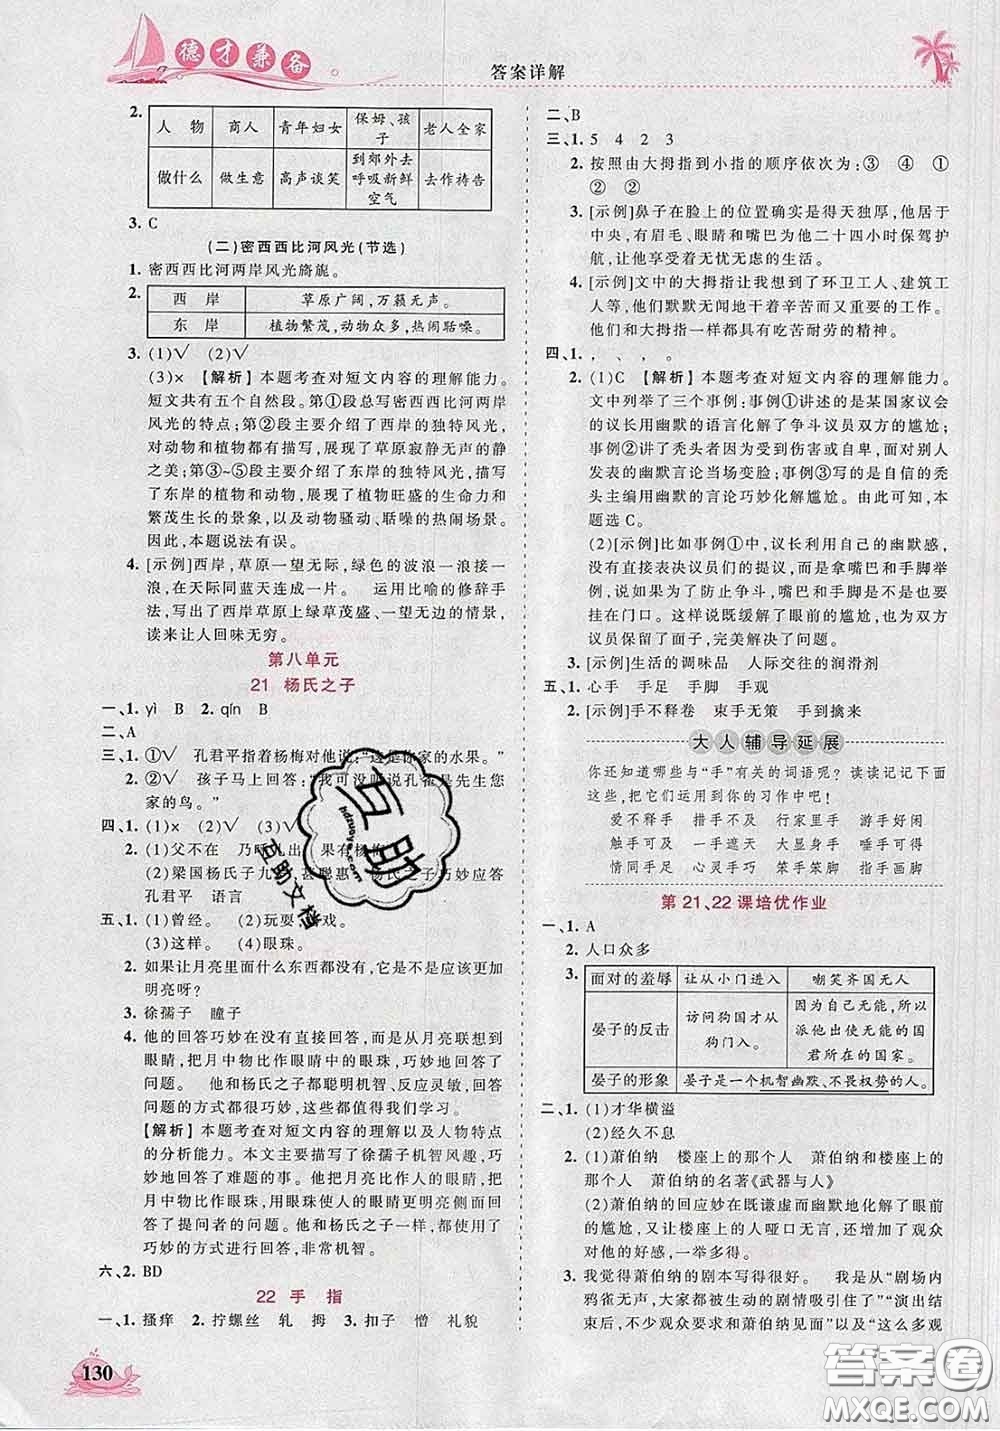 德才兼备
答案详解
2.
人 物 商人 青年妇女 保姆、孩子 老人全家
做什么 做生意 高声谈笑 到郊外去呼吸新鲜空气 去作祷告
3. C
(二)密西西比河风光(节选)
1. 密西西比河两岸风光旖旎。
2. 西 岸 草原广阔,万籁无声。
东 岸 植物繁茂,动物众多,热闹聒噪。
3. (1)√ (2)√
(3)× 【解析】本题考查对短文内容的理解能力。
短文共有五个自然段。第①段总写密西西比河两岸
风光的特点;第②段主要介绍了西岸的独特风光,
对动物和植物都有描写,展现了草原寂静无声的静
之美;第③~⑤段主要介绍了东岸的独特风光,描写
了东岸的植物和动物,展现了植物旺盛的生命力和
繁茂生长的景象,以及动物骚动、聒噪的热闹场景。
因此,本题说法有误。
4. [示例]西岸,草原一望无际,绿色的波浪一浪接一
浪,在天际同蓝天连成一片。 运用比喻的修辞手
法,写出了西岸草原上绿草茂盛、一望无边的情景,
读来让人回味无穷。
第八单元
21 杨氏之子
一、1. yì B 2. qín B
二、A
三、1. ①√ 孔君平指着杨梅对他说:“这是你家的水果。”
2. ②√ 孩子马上回答:“我可没听说孔雀是先生您
家的鸟。”
四、1. (1)× (2)√ (3)√
2. (1)父不在 乃呼儿出 果有杨梅
(2)梁国杨氏子九岁,甚聪惠 杨氏子巧妙应答
孔君平 语言
五、1. (1)曾经。 (2)玩耍,游戏。
(3)这样。 (4)眼珠。
2. 如果让月亮里面什么东西都没有,它是不是应该更加
明亮呀?
3. 徐孺子 瞳子
4. 他的回答巧妙在没有直接回答,而是从月亮联想到
眼睛,把月中物比作眼睛中的眼珠,巧妙地回答了
问题。 他和杨氏之子都聪明机智、反应灵敏,回答
问题的方式都很巧妙,都值得我们学习。
【解析】本题考查对短文内容的理解以及人物特点
的分析能力。本文主要讲述了徐孺子机智风趣,巧
妙地回答了难题的事情。他把月亮比作人的眼睛,把
月中物比作眼珠,用眼珠使人的眼睛更加明亮巧妙
的回答了提问者的问题。他和杨氏之子一样,都用
巧妙的方式进行回答,非常机智。
六、2. BD
22 手 指
一、1. 搔痒 2. 拧螺丝 轧 拇 3. 扣子 憎 礼貌
二、B
三、1. 5 4 2 3
2. 按照由大拇指到小指的顺序依次为:③ ④ ①
② ②
3. [示例]鼻子在脸上的位置确实是得天独厚,他居
于中央,有眉毛、眼睛和嘴巴为他二十四小时保驾护
航,让他享受着无忧无虑的生活。
4. [示例]文中的大拇指让我想到了环卫工人、建筑工
人等,他们默默无闻地干着辛苦而又重要的工作。
他们和大拇指一样都具有吃苦耐劳的精神。
四、1. , 、 , 。
2. (1)C 【解析】本题考查对短文内容的理解能力。
文中列举了三个事例:事例①讲述的是某国家议会
的议长用幽默的语言化解了争斗议员双方的尴尬,
事例②讲述了秃头者因为受到伤害或自卑,面对别人
发表的幽默言论当场变脸;事例③写的是自信的秃
头主编用幽默的言论巧妙化解尴尬。由此可知,本
题选C。
(2)[示例]比如事例①中,议长利用自己的幽默感,
没有直接表决议员们的提议,而是拿嘴巴和手脚开
玩笑,说如果为了防止争斗,嘴巴和手脚是不是也要
挂在门口。这样说既缓解了眼前的尴尬,也为双方
议员保留了面子,完美解决了问题。
3. [示例]生活的调味品 人际交往的润滑剂
五、1. 心手 手足 手脚 手观
2. [示例]手不释卷 束手无策 手到擒来
大人辅导延展
你还知道哪些与“手”有关的词语呢?读读记记下面
这些,把它们运用到你的习作中吧!
爱不释手 措手不及 行家里手 游手好闲
触手可及 一手遮天 大显身手 唾手可得
情同手足 心灵手巧 笨手笨脚 指手画脚
第21、22课培优作业
一、1. A
2. 人口众多
3. 面对的羞辱 让从小门进入 嘲笑齐国无人
晏子的反击 访问狗国才从狗门入 因为自己无能,所以派他出使无能的国君所在的国家。
晏子的形象 晏子是一个机智幽默、不畏权势的人。
二、1. (1)才华横溢
(2)经久不息
2. (1)萧伯纳 楼座上的那个人 萧伯纳和楼座上的
那个人 萧伯纳的名著《武器与人》
(2)萧伯纳的回应妙在既谦虚而幽默地化解了眼前
的尴尬,又让楼座上的人哑口无言,还增加了观众
对他的好感,一举多得。
3. 我觉得萧伯纳的剧本写得很好。 我是从“剧场内
鸦雀无声,大家都被生动的剧情吸引住了”“演出结
束后,不少观众要求和萧伯纳见面”以及“这么多观
130
互助
hdzuoye.com
互助文档
答案卷
MXQE.COM